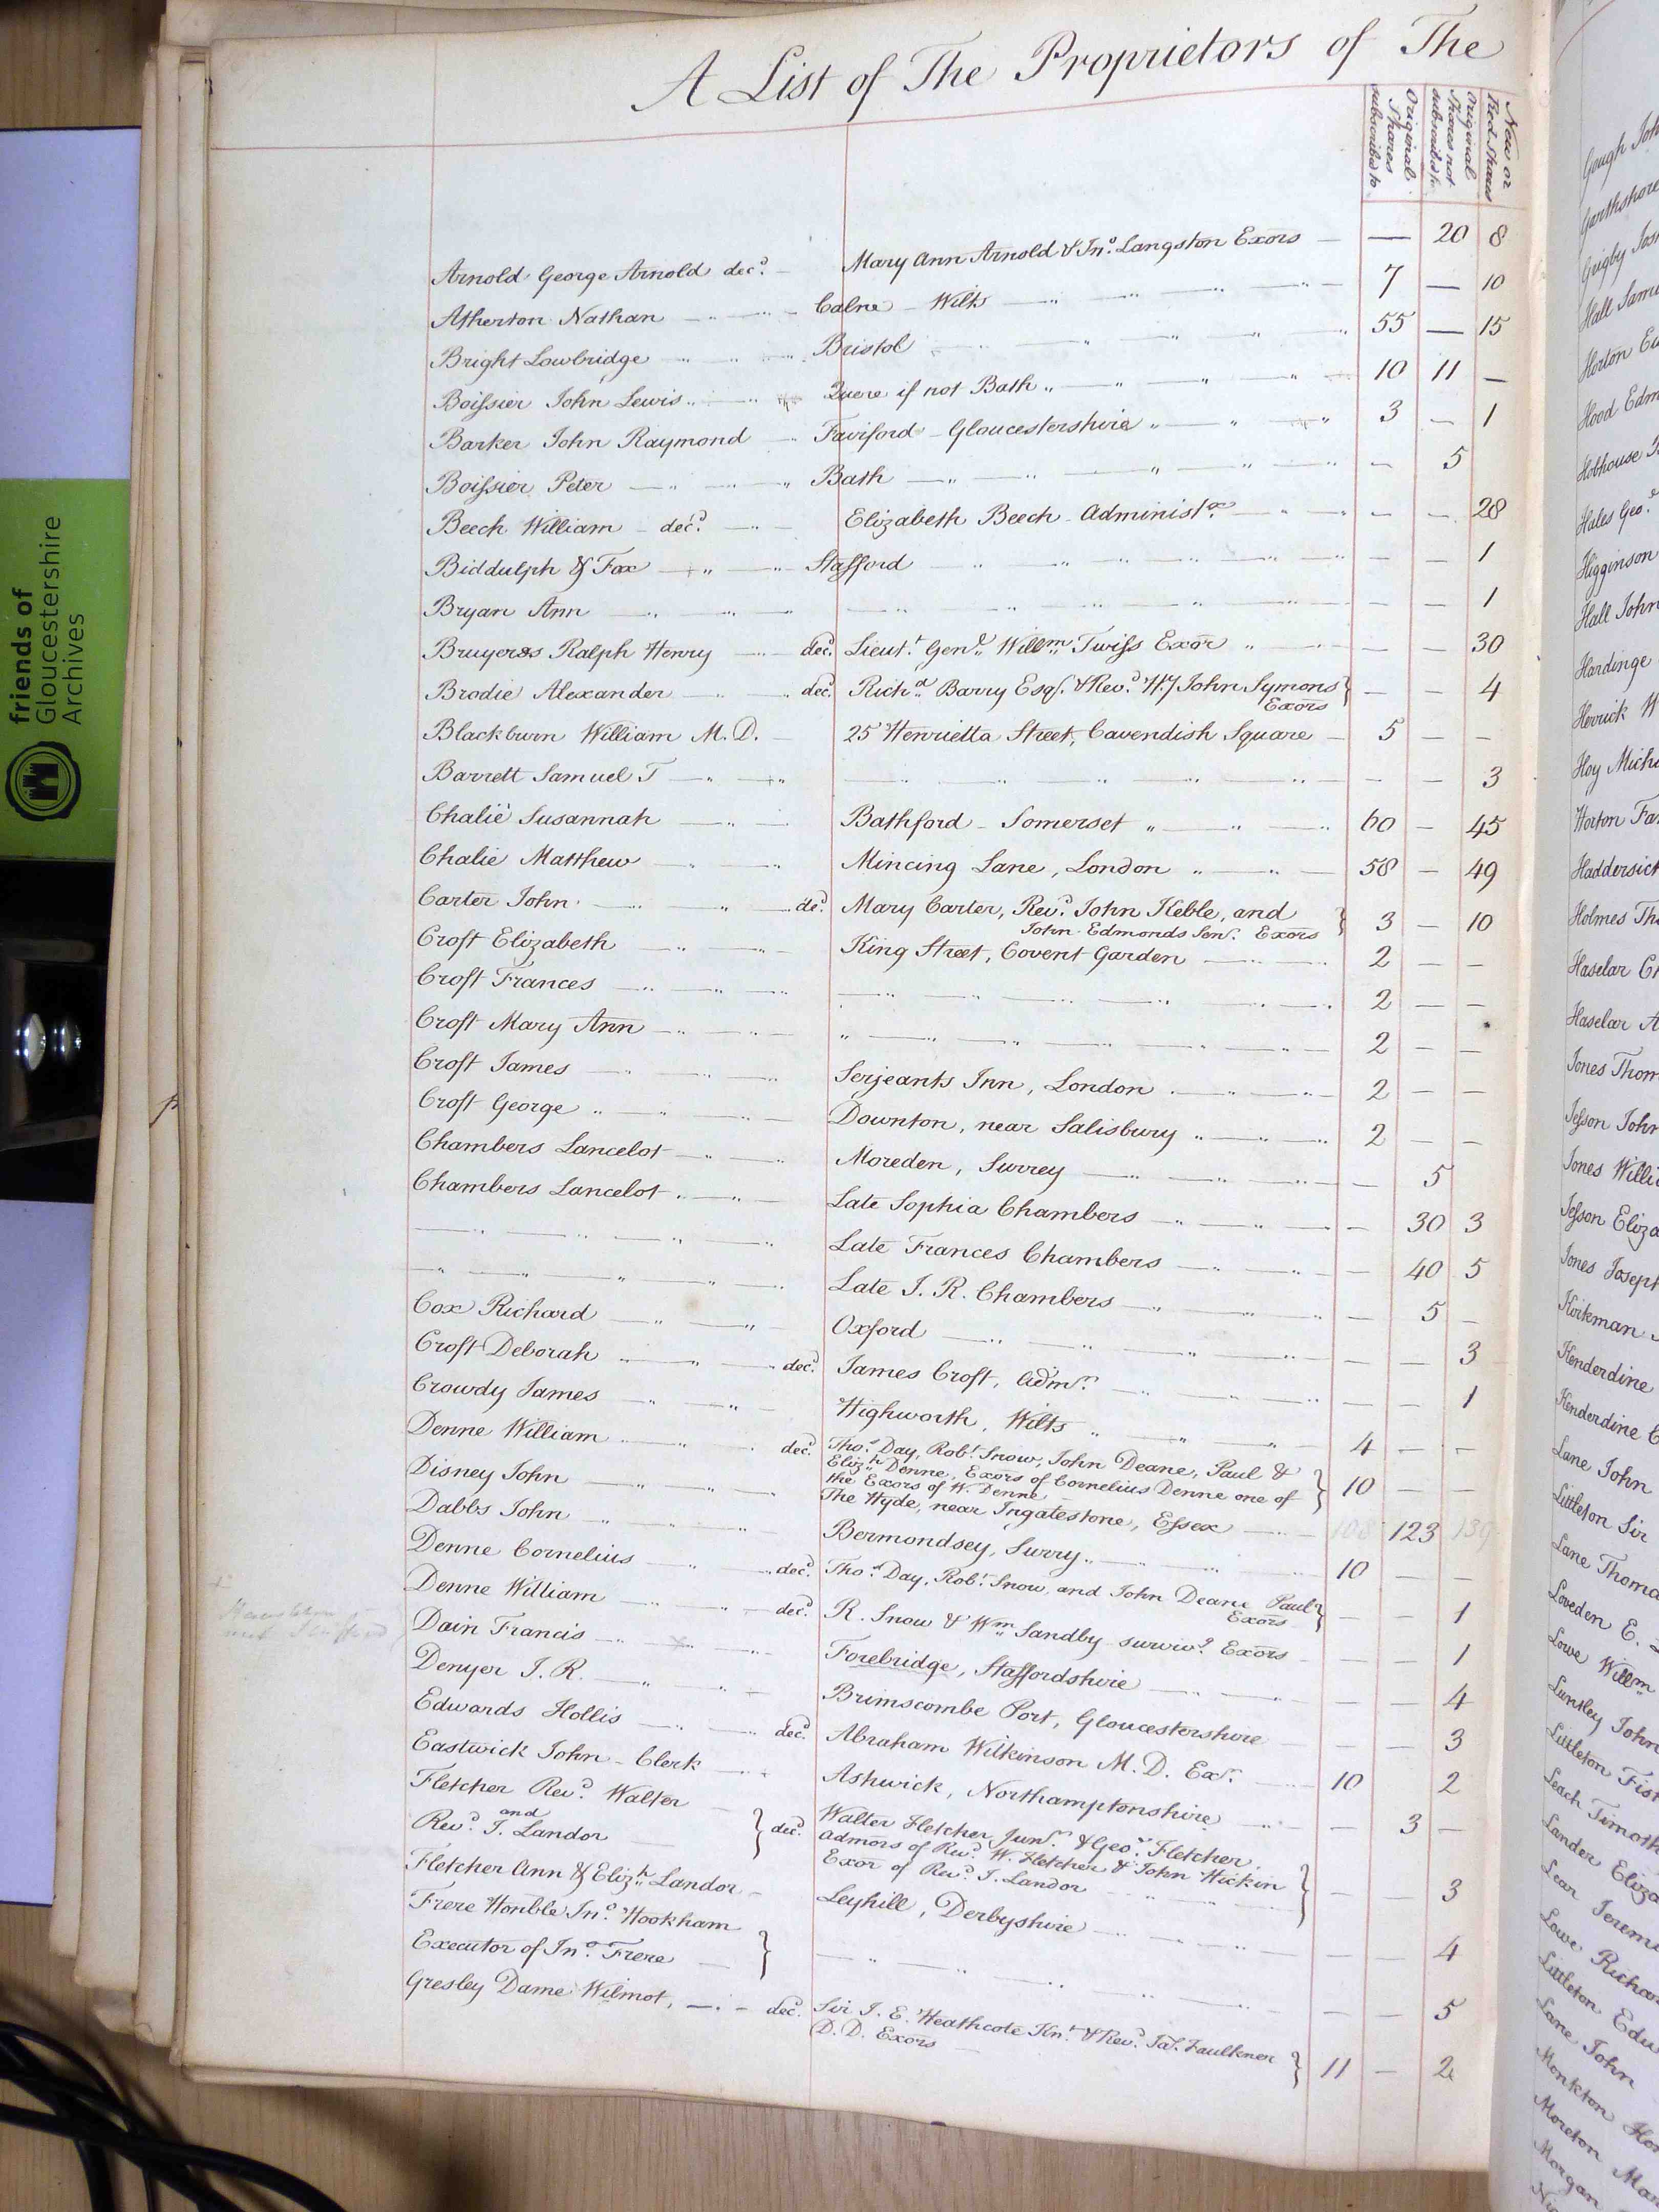 A List of The Proprietors of The
Original Shares subscribed to
Original Shares not subscribed to
New or Red Shares
Arnold George Arnold decd. Mary Ann Arnold & Jno. Langston Exors — 20 8
Atherton Nathan Calne Wilts 7 — 10
Bright Lowbridge Bristol 55 — 15
Boissier John Lewis Quere if not Bath 10 11 —
Barker John Raymond Fairford Gloucestershire 3 — 1
Boissier Peter Bath — 5
Beech William decd. Elizabeth Beech Administx — — 28
Biddulph & Fox Stafford — — 1
Bryan Ann — — 1
Bruyeres Ralph Henry decd. Lieut. Genl. Willm. Twiss Exor — — 30
Brodie Alexander decd. Richd. Barry Esqr. & Revd. Wy John Symons — — 4
Exors
Blackburn William M.D. 25 Henrietta Street, Cavendish Square 5 — —
Barrett Samuel T — — 3
Chalié Susannah Bathford Somerset 60 — 45
Chalie Matthew Mincing Lane, London 58 — 49
Carter John decd. Mary Carter, Revd. John Keble, and 3 — 10
John Edmonds Senr. Exors
Croft Elizabeth King Street, Covent Garden 2 — —
Croft Frances 2 — —
Croft Mary Ann 2 — —
Croft James Serjeants Inn, London 2 — —
Croft George Downton, near Salisbury 2 — —
Chambers Lancelot Moreden, Surrey — 5
Chambers Lancelot Late Sophia Chambers — 30 3
Late Frances Chambers — 40 5
Late J. R. Chambers — 5 —
Cox Richard Oxford — — 3
Croft Deborah decd. James Croft, Admr. — — 1
Crowdy James Highworth, Wilts 4 — —
Denne William decd. Thos. Day, Robt. Snow, John Deane, Paul &
Elizth. Denne, Exors of Cornelius Denne one of
the Exors of W. Denne 10 — —
Disney John The Hyde, near Ingatestone, Essex 108 123 139
Dabbs John Bermondsey, Surry 10 — —
Denne Cornelius decd. Thos. Day, Robt. Snow, and John Deane Paul — — 1
Exors
Denne William decd. R. Snow & Wm. Sandby survivg. Exors — — 1
Dain Francis Forebridge, Staffordshire — — 4
Denyer J. R. Brimscombe Port, Gloucestershire — — 3
Edwards Hollis decd. Abraham Wilkinson M.D. Exr. 10 2
Eastwick John Clerk Ashwick, Northamptonshire — 3 —
Fletcher Revd. Walter
and
Revd. J. Landor decd. Walter Fletcher Junr. & Geo. Fletcher
Admors of Revd. W. Fletcher & John Hickin
Exor of Revd. J. Landor — — 3
Fletcher Ann & Elizth. Landor Leyhill, Derbyshire — — 4
Frere Honble Jno. Hookham
Executor of Jno. Frere — — 5
Gresley Dame Wilmot, decd. Sir J. E. Heathcote Knt. & Revd. Jas. Faulkner
D.D. Exors 11 — 2
friends of
Gloucestershire
Archives
Gough Joh
Garthshore
Grigby Jos
Hall Samu
Horton Eu
Hood Edm
Hobhouse
Hales Geo.
Higginson
Hall John
Hardinge
Herrick W
Hoy Micha
Horton Fa
Haddersich
Holmes Tho
Haselar Ch
Haselar A
Jones Thom
Jesson John
Jones Willi
Jesson Eliza
Jones Joseph
Kirkman
Kenderdine
Kenderdine C
Lane John
Littleton Sir
Lane Thoma
Loveden E.
Lowe Willm
Luntley John
Littleton Fis
Leach Timoth
Lander Eliza
Lear Jeremi
Lowe Richar
Littleton Edw
Lane John
Monkton Hon
Moreton Mar
Morgan